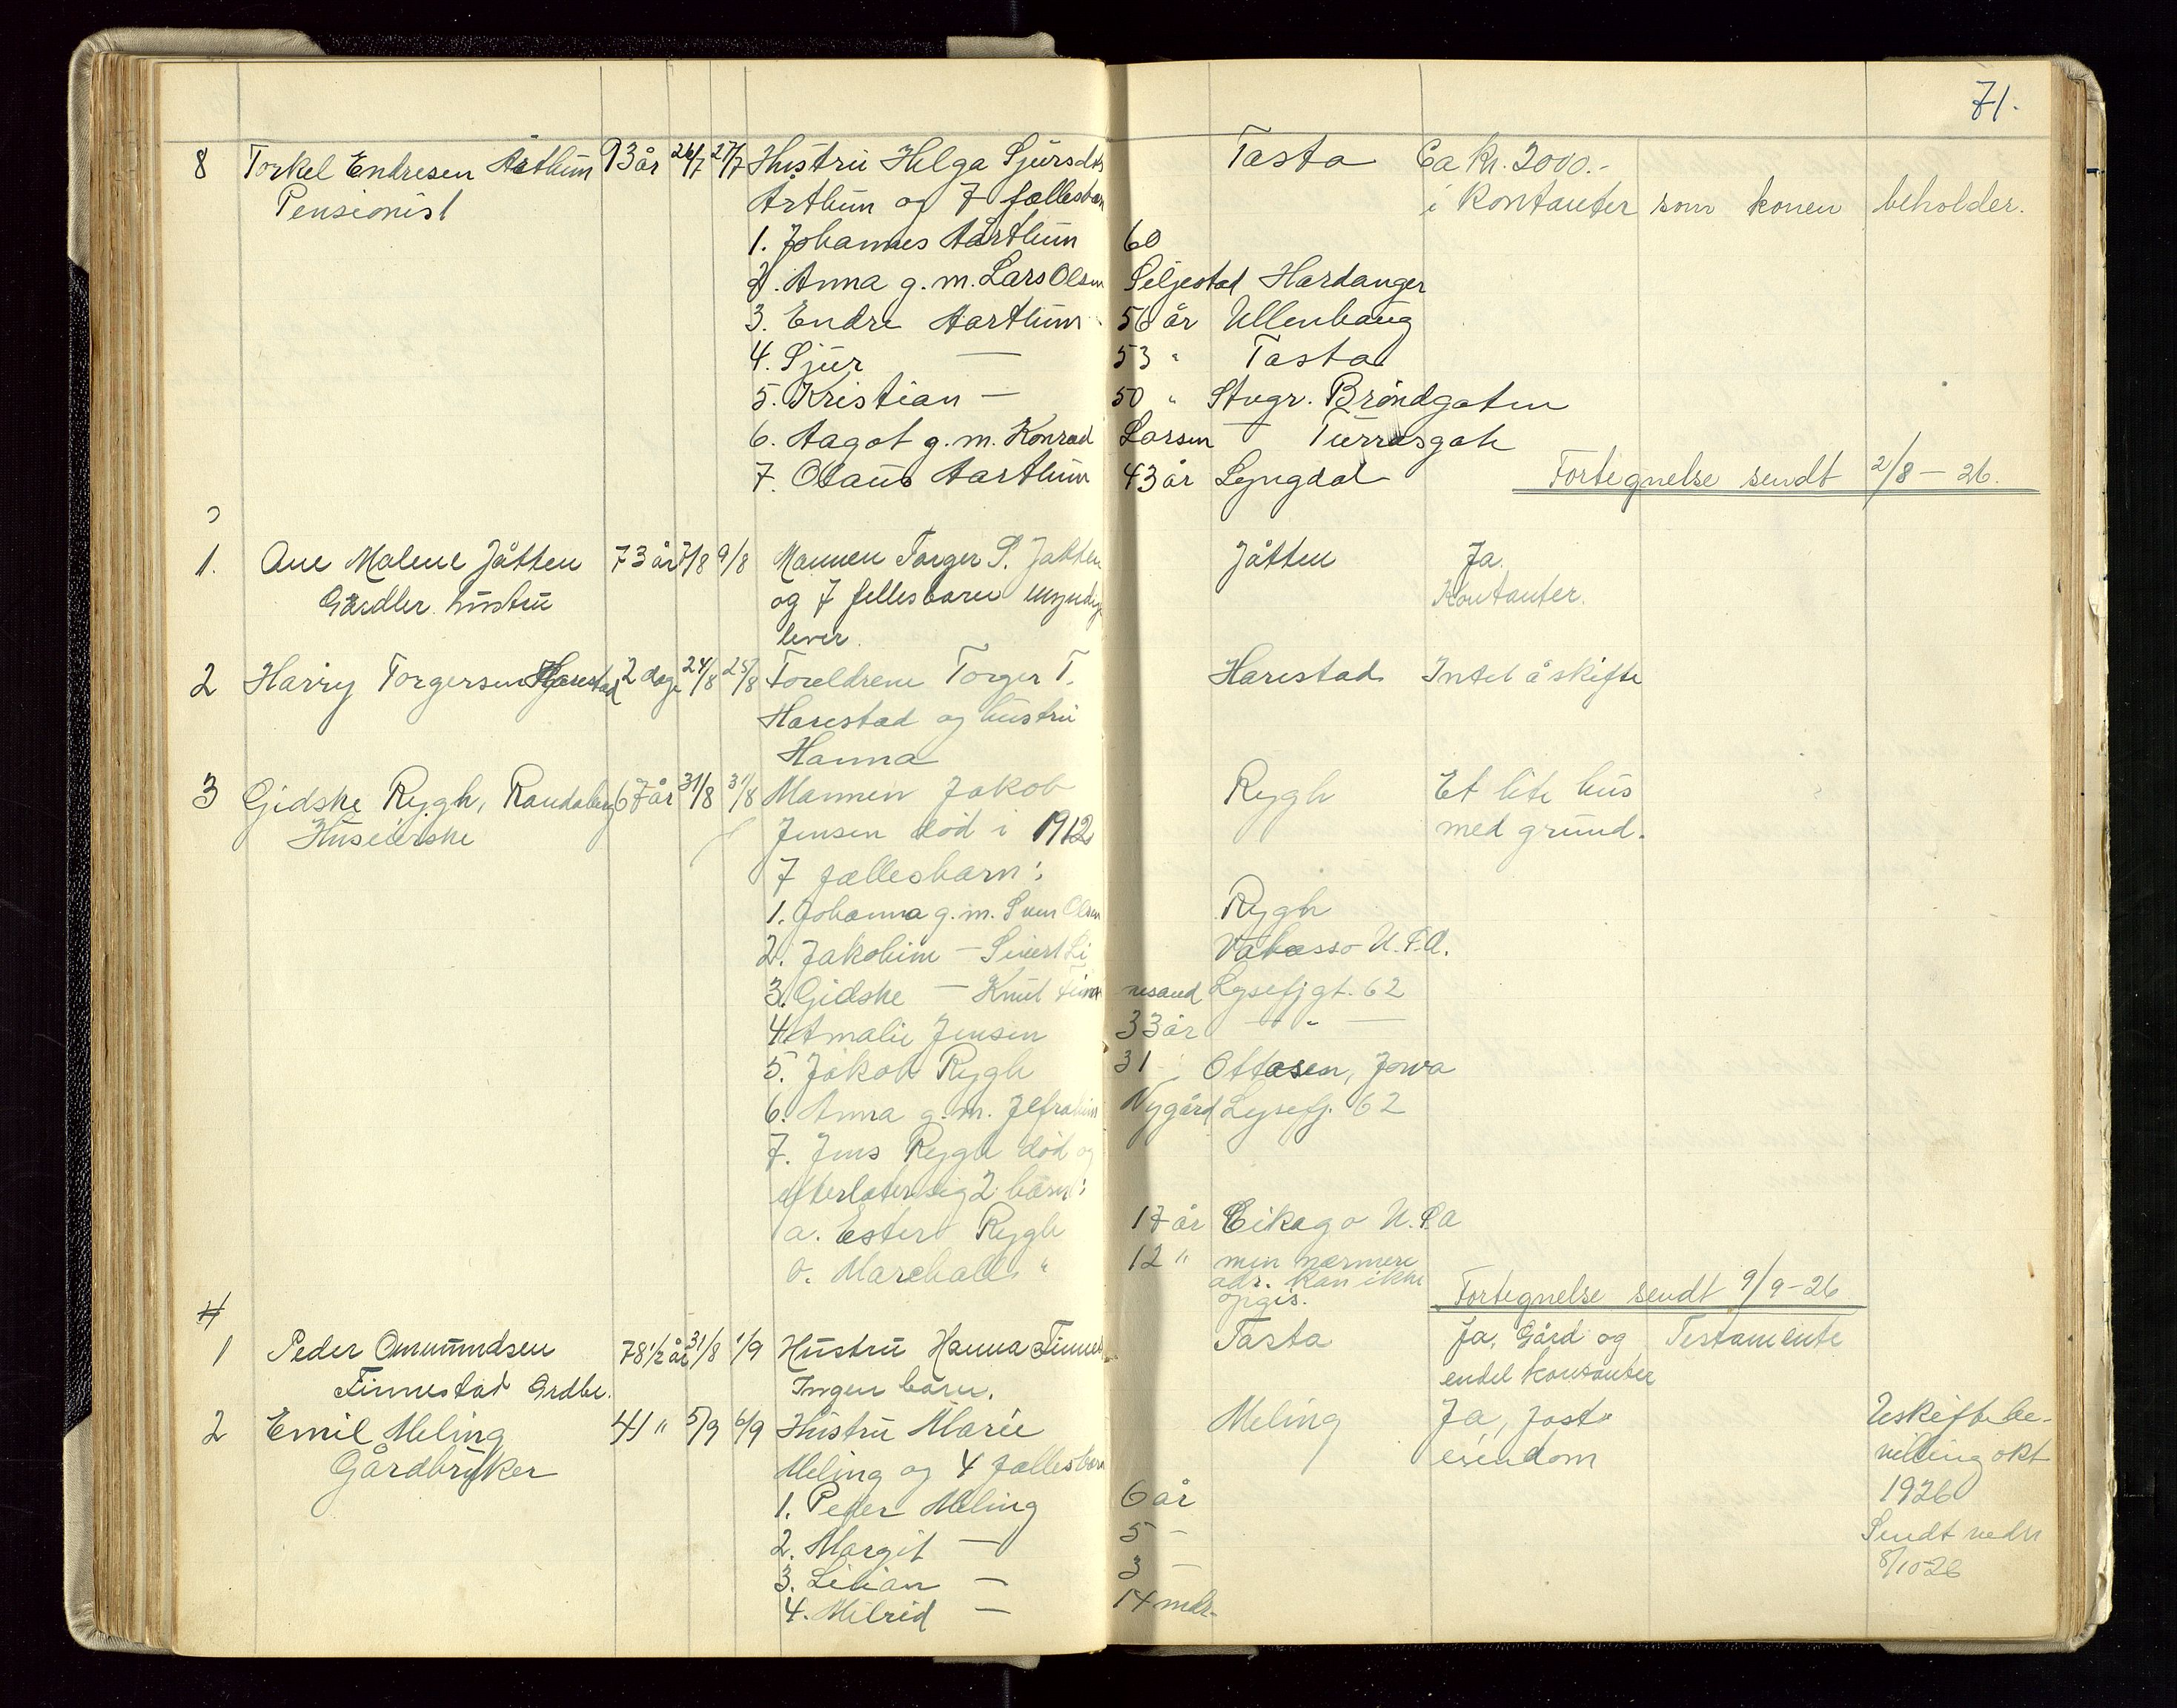 71.
8 Torkel Endresen Årthun 93 år 26/7 27/7 Hustru Helga Sjursdtr Tasta Ca kr. 2000.-
Pensionist Årthun og 7 fællesbarn i kontanter som konen beholder.
1. Johannes Aarthun 60
2. Anna g. m. Lars Olsen Seljestad Hardanger
3. Endre Aarthun 56 år Ullenhaug
4. Sjur — 53 " Tasta
5. Kristian — 50 " Stvgr. Brøndgaten
6. Aagot g. m. Konrad Larsen — Turrasgate
7. Olaus Aarthun 43 år Lyngdal Fortegnelse sendt 2/8 - 26.
1. Ane Malene Jåtten 73 år 7/8 9/8 Mannen Torger S. Jåtten Jåtten Ja.
Gårdbr. hustru og 7 fellesbarn myndige Kontanter.
lever.
2 Harry Torgersen Harestad 2 dage 24/8 25/8 Foreldrene Torger T. Harestad Intet å skifte
Harestad og hustru
Hanna
3 Gidske Rygh, Randaberg 67 år 31/8 31/8 Mannen Jakob Rygh Et lite hus
Huseierske Jensen død i 1912 med grund.
7 fællesbarn:
1. Johanna g. m. Sven Olsen Rygh
2. Jakobine — Sivert Li Vabasso U.S.A.
3. Gidske — Knut Finnesand Lysefjgt. 62
4. Amalie Jensen 33 år — " —
5. Jakob Rygh 31 " Ottosen, Jowa
6. Anna g. m. Nygård Lysefj. 62
7. Jens Rygh død og
efterlater sig 2 barn:
a. Ester Rygh 17 år Cikago U.S.A
b. Marchall " 12 " men nærmere
adr. kan ikke
opgis. Fortegnelse sendt 9/9-26
4
1 Peder Ommundsen 78 1/2 år 31/8 1/9 Hustru Hanna Finnes Tasta Ja, Gård og Testamente
Finnestad Grdbr. Ingen barn. endel kontanter
2 Emil Meling 41 " 5/9 6/9 Hustru Marie Meling Ja, fast Uskiftebe-
Gårdbruker Meling og 4 fællesbarn eiendom villing okt
1. Peder Meling 6 år 1926
2. Margit — 5 — Sendt vedk
3. Lilian — 3 — 8/10-26
4. Milrid — 14 mdr.